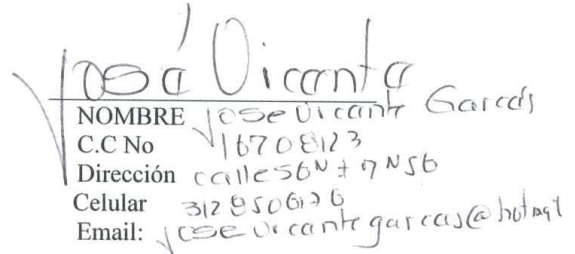 José Vicente
NOMBRE Jose Vicente Garces
C.C No 16708123
Dirección calle 56N # 7N56
Celular 3128506126
Email: josevicentegarces@hotmail